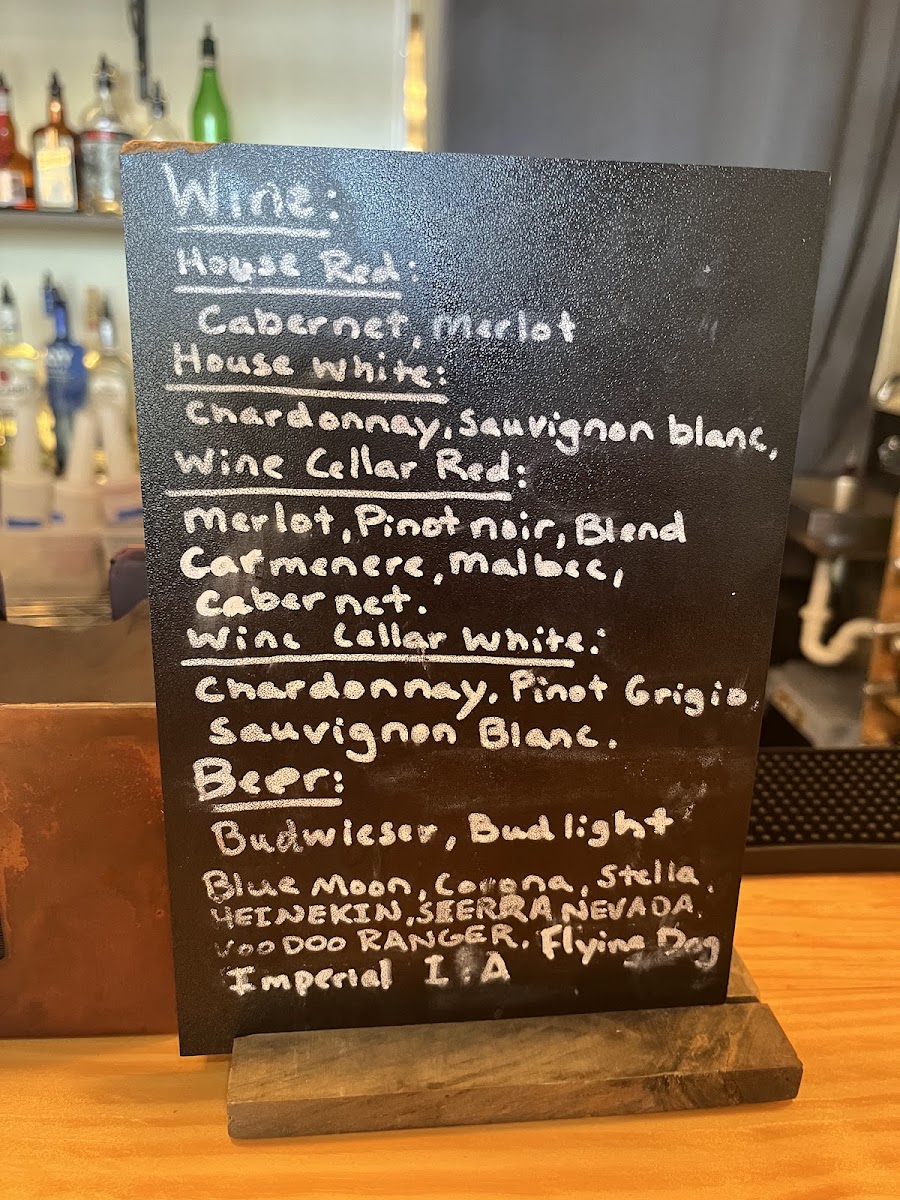 Wine:
House Red:
Cabernet, Merlot
House White:
Chardonnay, Sauvignon blanc,
Wine Cellar Red:
Merlot, Pinot noir, Blend
Carmenere, Malbec,
Cabernet.
Wine Cellar White:
Chardonnay, Pinot Grigio
Sauvignon Blanc.
Beer:
Budwieser, Bud light
Blue Moon, Corona, Stella,
HEINEKIN, SEERRA NEVADA.
VOODOO RANGER. Flying Dog
Imperial I.A